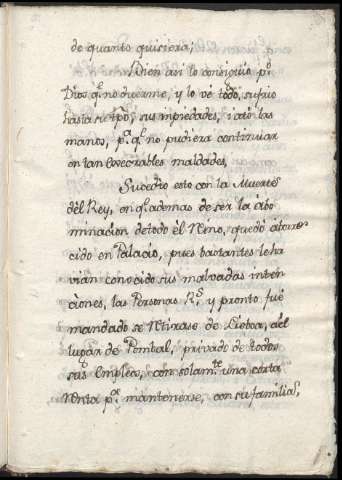 de quanto quisiera;
Bien asi lo consiguió pº
Dios qº no duerme, y lo ve todo, sufrio
hasta su tpº, sus impiedades, i atò las
manos, pª qº no pudiera continuar
en tan execrables maldades.
Sucedio esto con la Muerte
del Rey, en qº ademas de ser la abo
minacion de todo èl Reino, quedó aborre
cido en Palacio, pues bastantes le ha
vian conocido sus malvadas inten
ciones, las Personas Rˢ y pronto fué
mandado se Retirase de Lisboa, àl
lugàr de Pombal, privado de todos
sus Empleos, con solamᵗᵉ una corta
Renta pª mantenerse, con su familia,